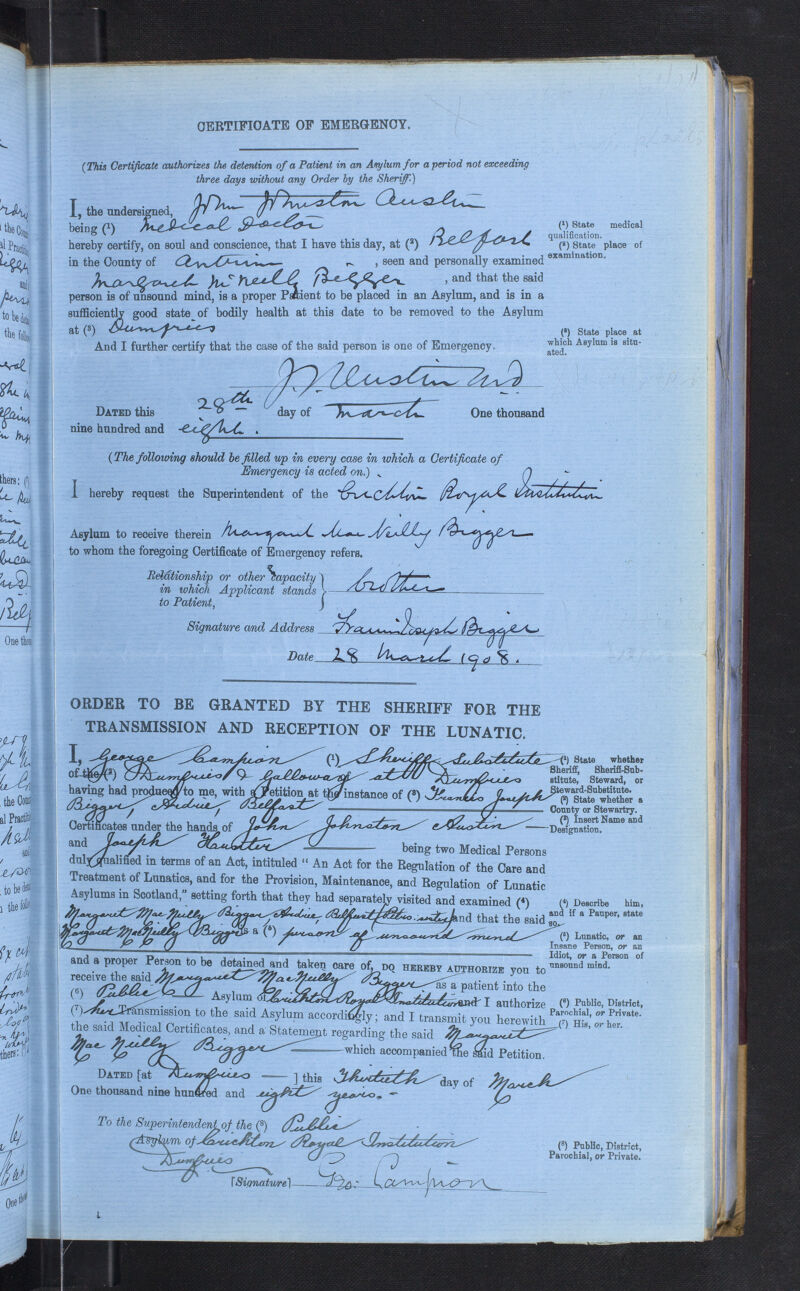 CERTIFICATE OF EMERGENCY.
(This Certificate authorizes the detention of a Patient in an Asylum for a period not exceeding
three days without any Order by the Sheriff.)
I, the undersigned, John Johnston Austin
being (1) Medical Doctor
(1) State medical
qualification.
hereby certify, on soul and conscience, that I have this day, at (2) Belfast
(2) State place of
examination.
in the County of Antrim , seen and personally examined
Margaret McNeilly Bigger , and that the said
person is of unsound mind, is a proper Patient to be placed in an Asylum, and is in a
sufficiently good state of bodily health at this date to be removed to the Asylum
at (3) Dumfries
(3) State place at
which Asylum is situ-
ated.
And I further certify that the case of the said person is one of Emergency.
J. J. Austin MD
DATED this 28th day of March One thousand
nine hundred and eight.
(The following should be filled up in every case in which a Certificate of
Emergency is acted on.)
I hereby request the Superintendent of the Crichton Royal Institution
Asylum to receive therein Margaret MacNeilly Bigger
to whom the foregoing Certificate of Emergency refers.
Relationship or other capacity
in which Applicant stands
to Patient,
brother
Signature and Address Francis Joseph Bigger
Date 28 March 1908.
ORDER TO BE GRANTED BY THE SHERIFF FOR THE
TRANSMISSION AND RECEPTION OF THE LUNATIC.
I, George Campion (1) Sheriff Substitute
of the (2) Dumfries & Galloway at Dumfries
having had produced to me, with a Petition at the instance of (3) Francis Joseph
Bigger, Ardrie, Belfast
(1) State whether
Sheriff, Sheriff-Sub-
stitute, Steward, or
Steward-Substitute.
(2) State whether a
County or Stewartry.
(3) Insert Name and
Designation.
Certificates under the hands of John Johnston Austin
and Joseph being two Medical Persons
duly qualified in terms of an Act, intituled "An Act for the Regulation of the Care and
Treatment of Lunatics, and for the Provision, Maintenance, and Regulation of Lunatic
Asylums in Scotland," setting forth that they had separately visited and examined (4)
Margaret MacNeilly Bigger Ardrie, Belfast sister and that the said
Margaret MacNeilly Bigger is a (5) person of unsound mind
(4) Describe him,
and if a Pauper, state
so.
(5) Lunatic, or an
Insane Person, or an
Idiot, or a Person of
unsound mind.
and a proper Person to be detained and taken care of, DO HEREBY AUTHORIZE you to
receive the said Margaret MacNeilly Bigger as a patient into the
(6) Public Asylum of Crichton Royal Institution and I authorize
(7) her Transmission to the said Asylum accordingly; and I transmit you herewith
(6) Public, District,
Parochial, or Private.
(7) His, or her.
the said Medical Certificates, and a Statement regarding the said Margaret
MacNeilly Bigger which accompanied the said Petition.
DATED [at Dumfries ] this Thirtieth day of March
One thousand nine hundred and eight years.
To the Superintendent of the (8) Public
Asylum of Crichton Royal Institution
Dumfries
(8) Public, District,
Parochial, or Private.
[Signature] Geo: Campion